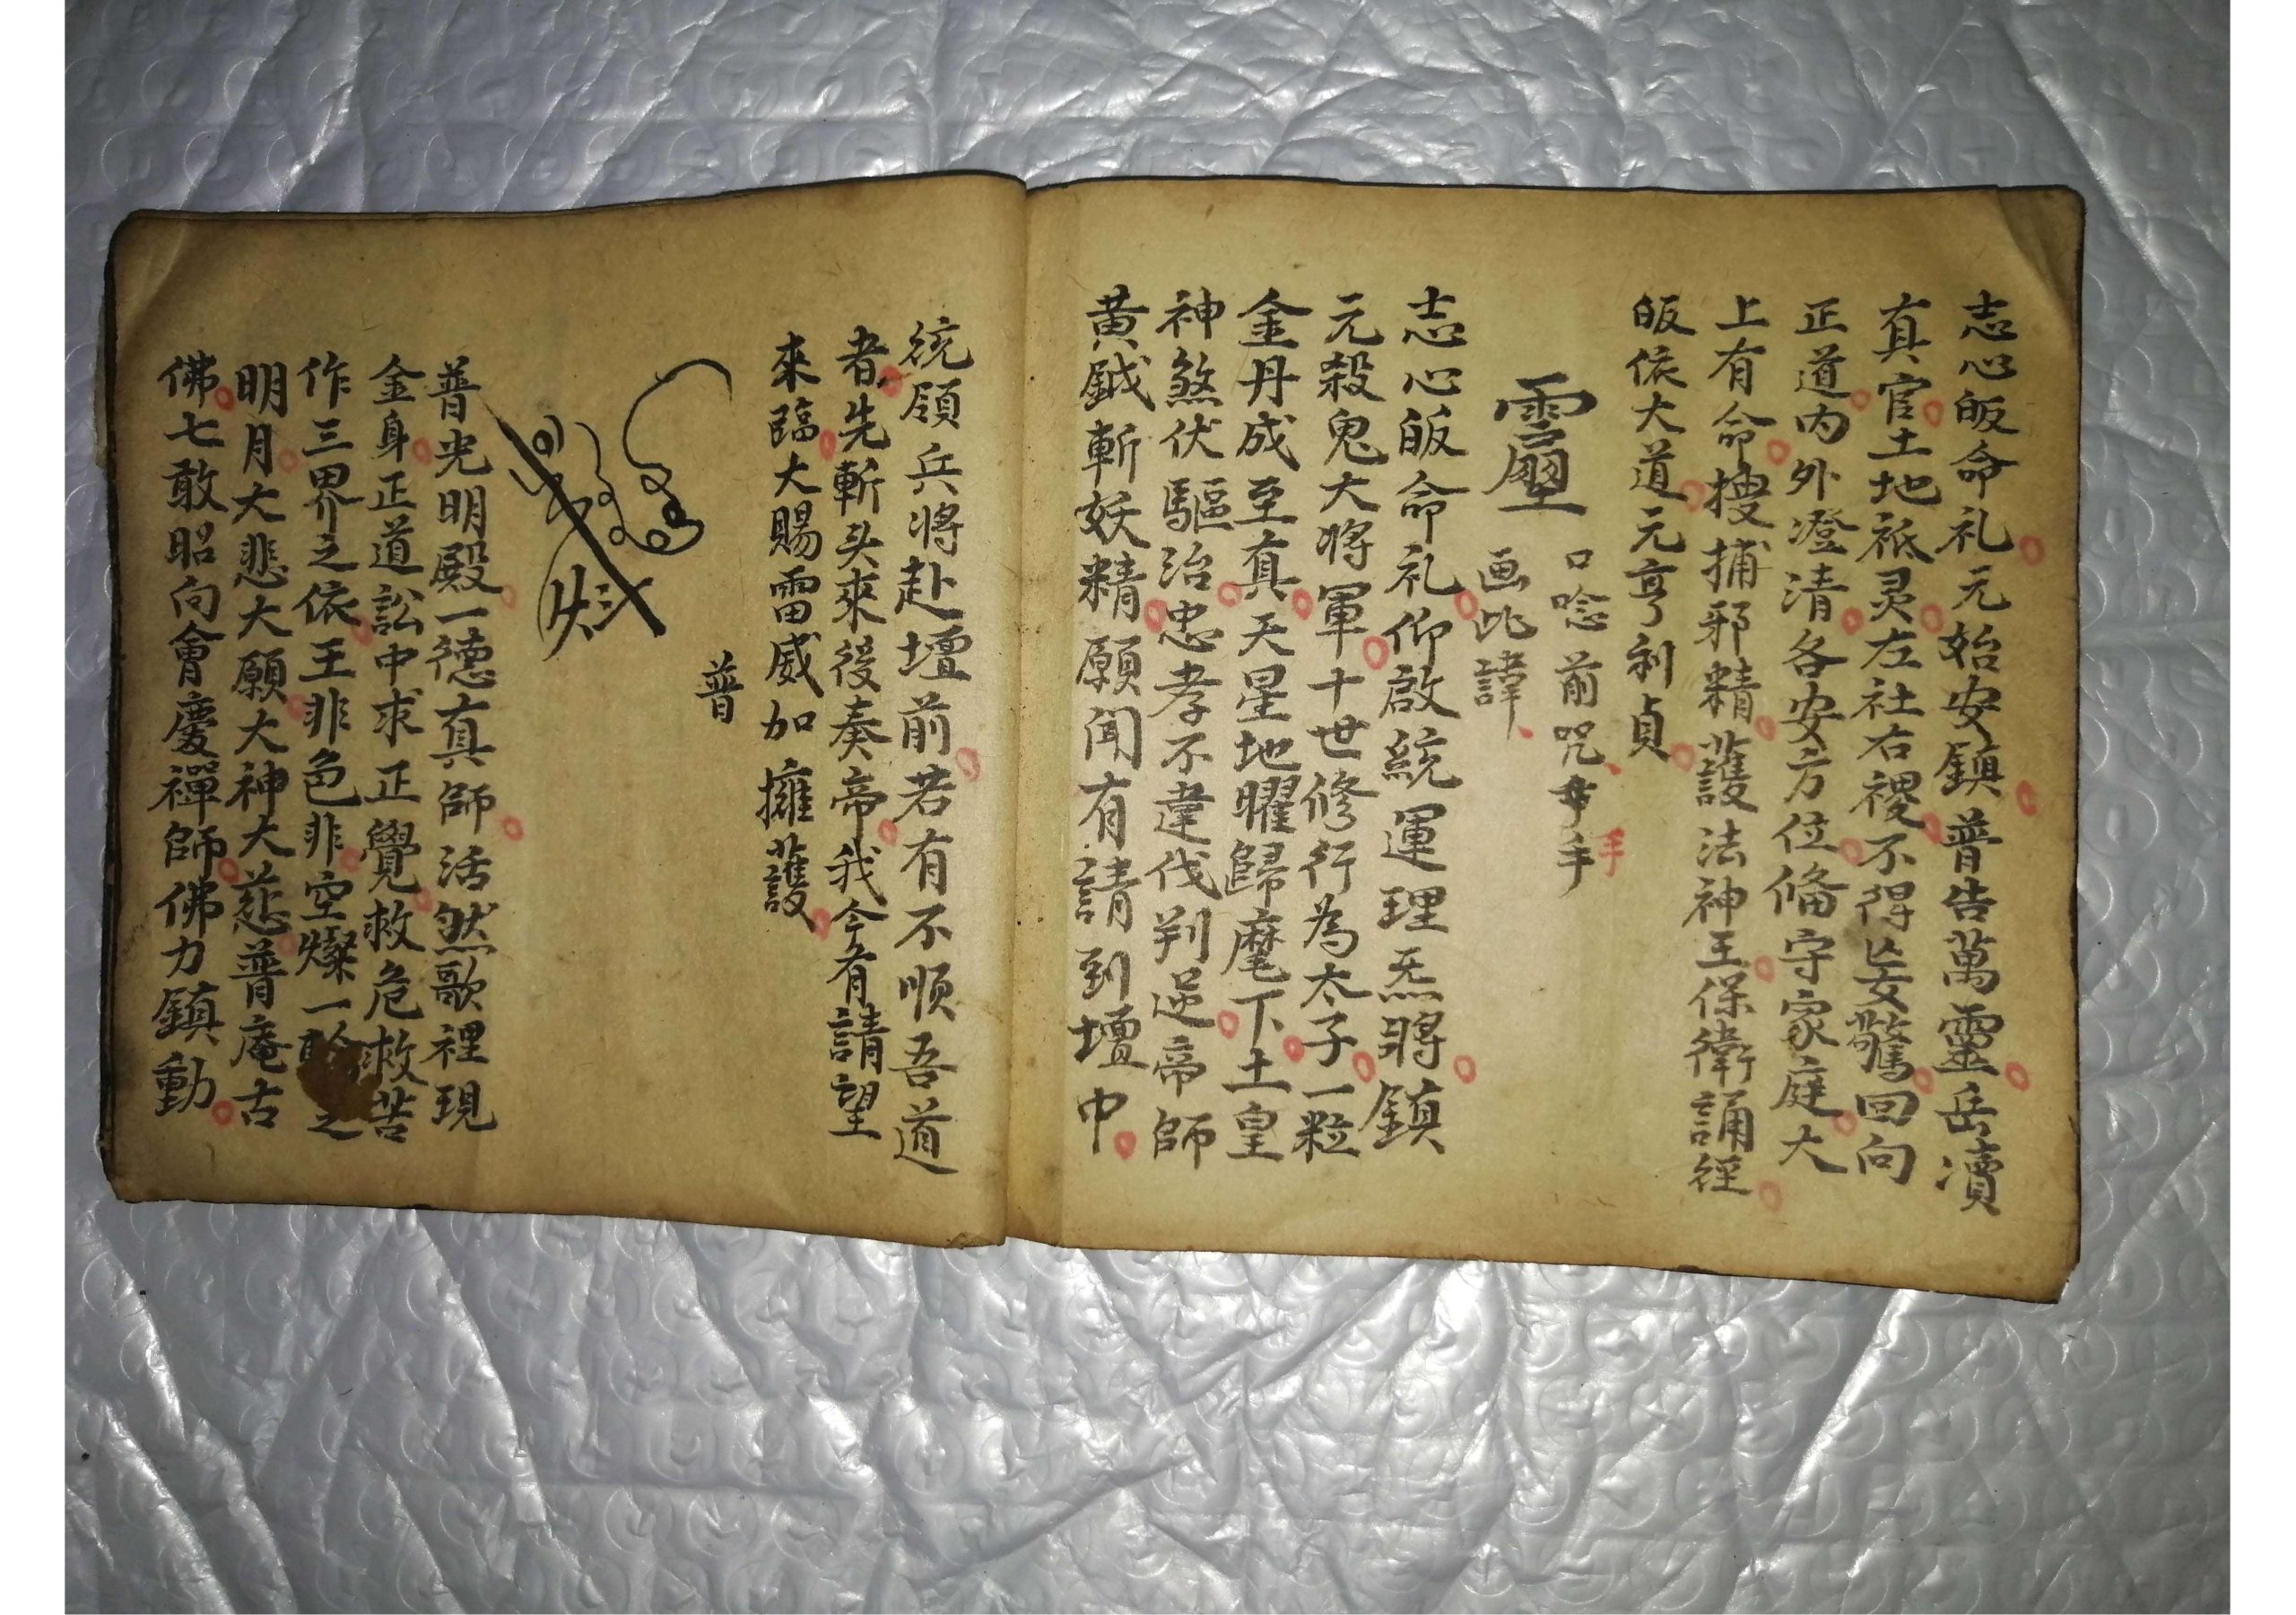 志心皈命礼元始安鎮普告萬靈岳瀆
真官土地祇灵左社右稷不得妄驚回向
正道内外澄清各安方位俻守家庭大
上有命搜捕邪精護法神王保衛誦徑
皈依大道元亨利貞
口唸前咒 手
手
画此諱
志心皈命礼仰啟統運理炁將鎮
元殺鬼大將軍十世修行為太子一粒
金丹成至真天星地曜歸麾下土皇
神煞伏驅治忠孝不違伐判逆帝師
黃鉞斬妖精願闻有請到壇中
統領兵將赴壇前若有不順吾道
者先斬头來後奏帝我今有請望
來臨大賜雷威加擁護
普
普光明殿一德真師活然歌裡現
金身正道訟中求正覺救危救苦
作三界之依王非色非空燦一之
明月大悲大願大神大慈普庵古
佛七敢昭向會慶禪師佛力鎮動